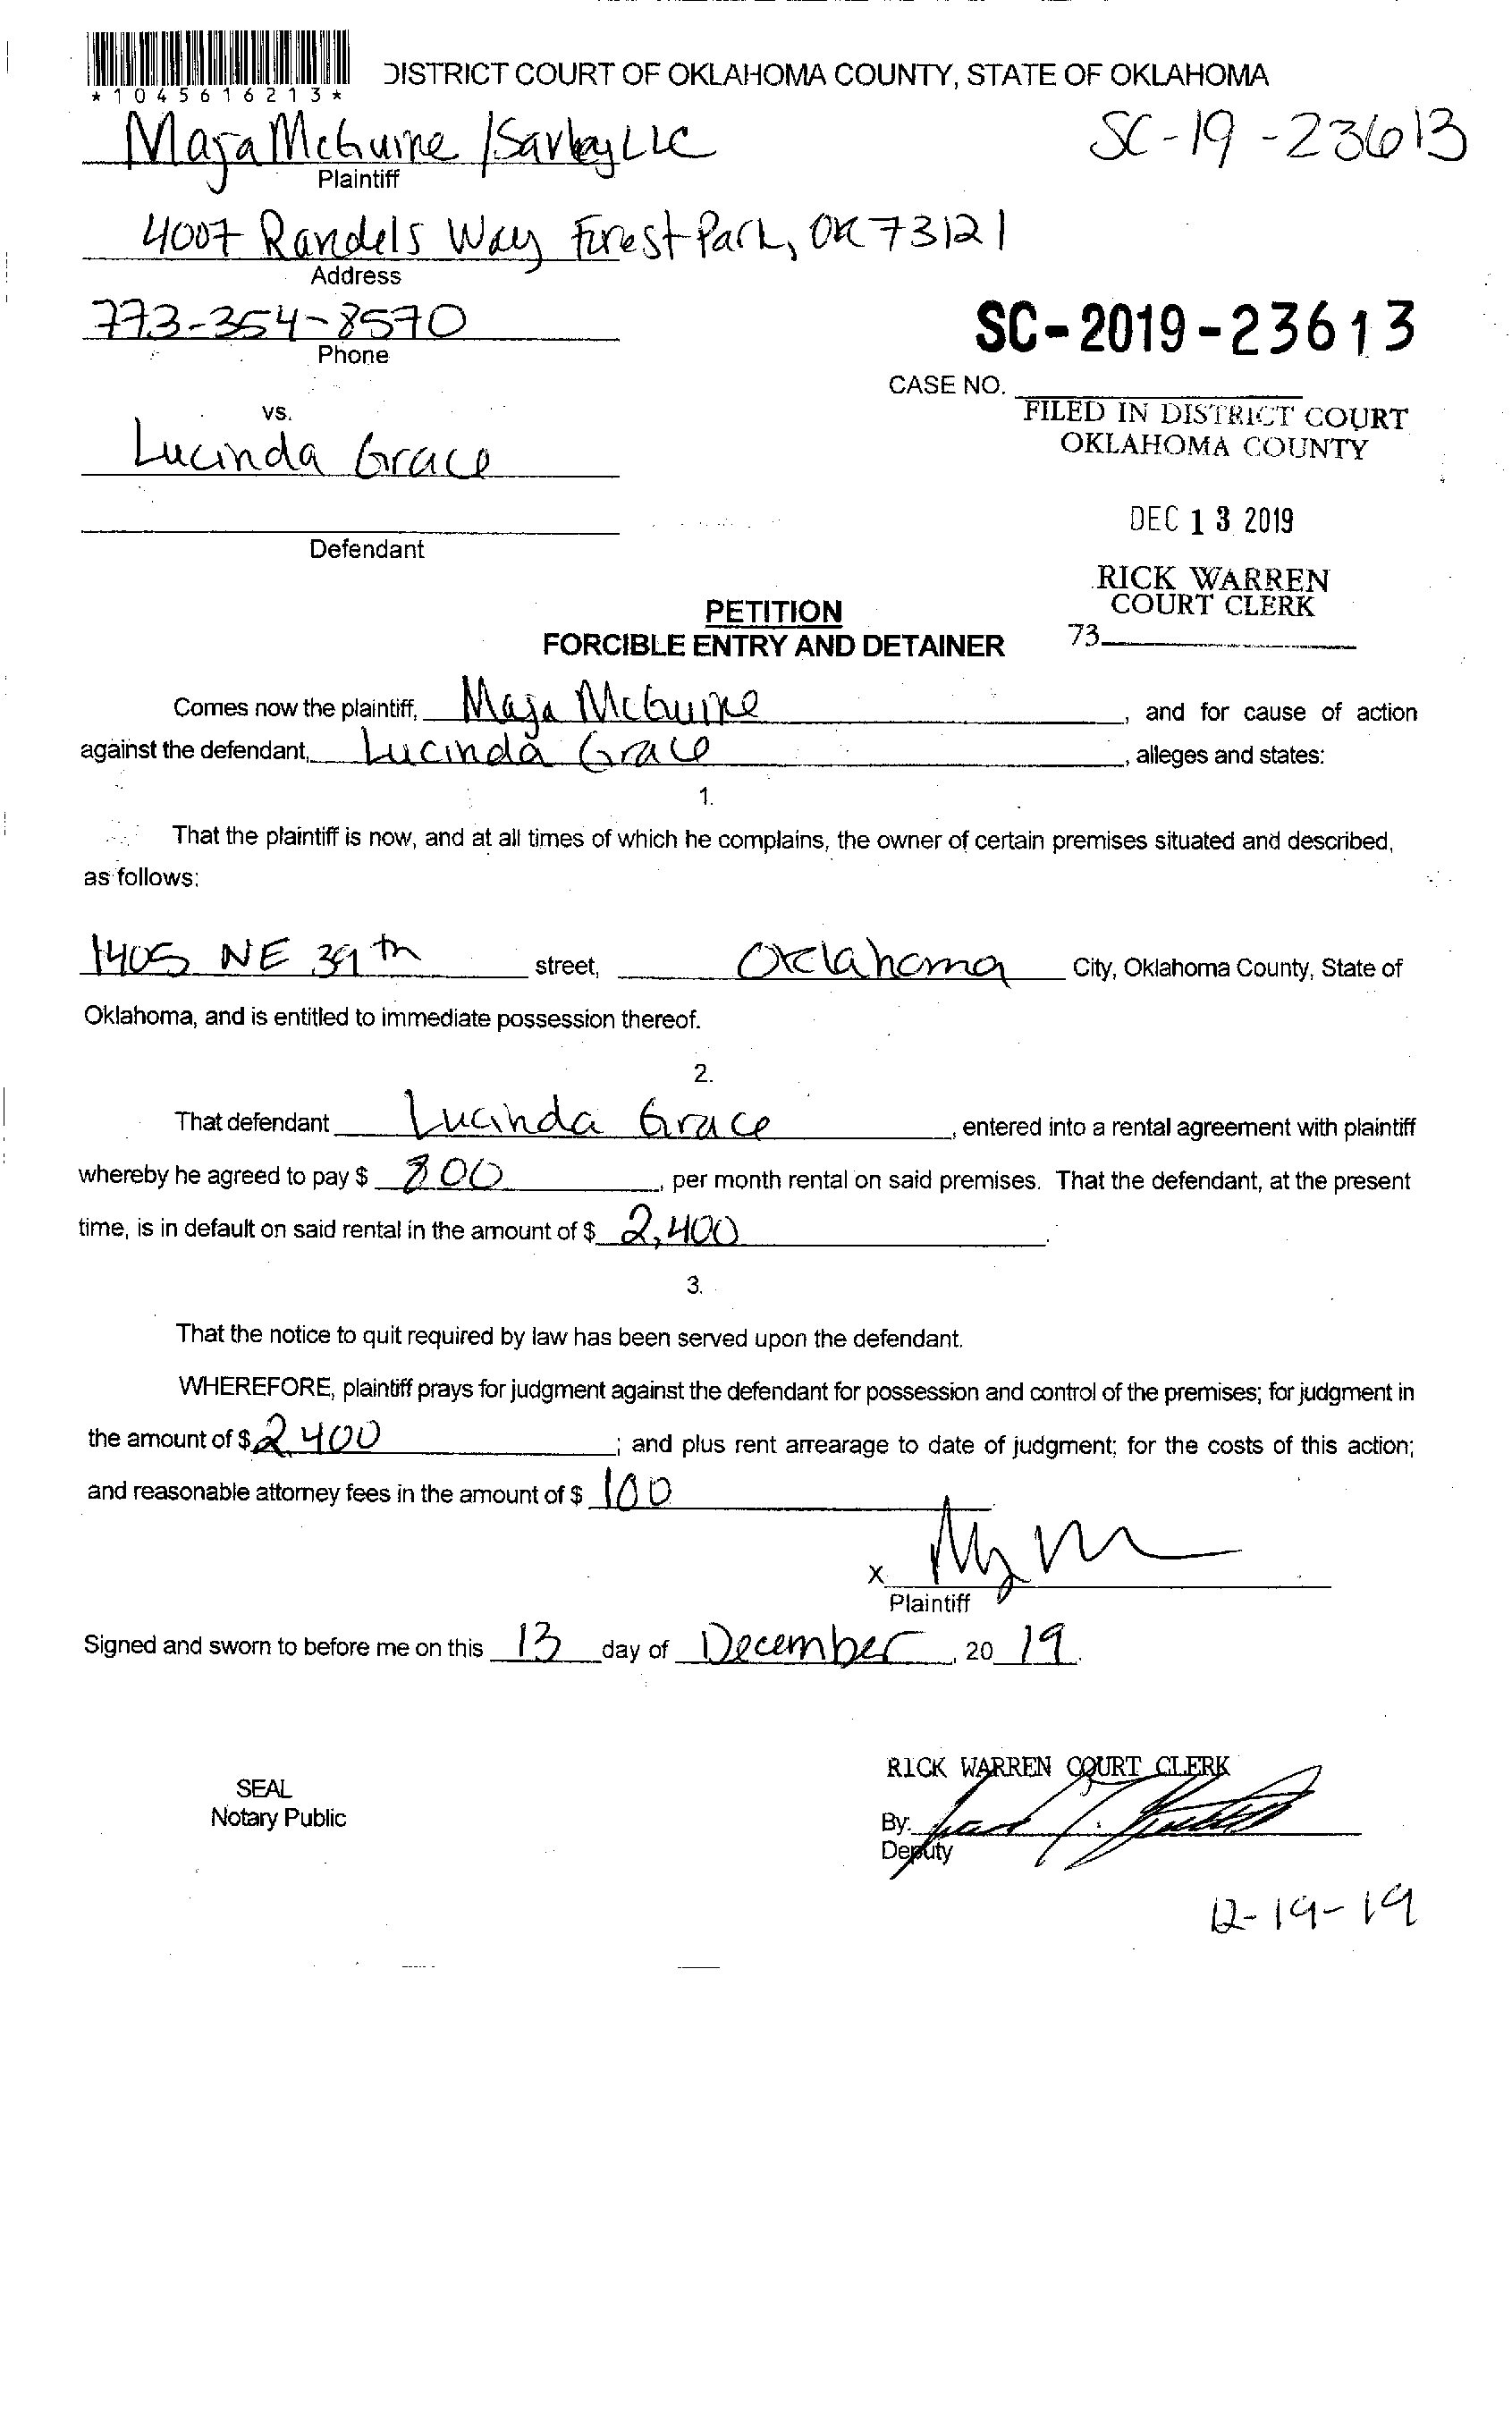 *1045616213*
DISTRICT COURT OF OKLAHOMA COUNTY, STATE OF OKLAHOMA
Maja McGuire / Savkey LLC
SC-19-23613
Plaintiff
4007 Randels Way Forest Park, OK 73121
Address
773-354-8570
SC-2019-23613
Phone
CASE NO.
vs.
FILED IN DISTRICT COURT
OKLAHOMA COUNTY
Lucinda Grace
DEC 13 2019
Defendant
RICK WARREN
COURT CLERK
73
PETITION
FORCIBLE ENTRY AND DETAINER
Comes now the plaintiff, Maja McGuire, and for cause of action
against the defendant, Lucinda Grace, alleges and states:
1.
That the plaintiff is now, and at all times of which he complains, the owner of certain premises situated and described,
as follows:
1405 NE 39th street, Oklahoma City, Oklahoma County, State of
Oklahoma, and is entitled to immediate possession thereof.
2.
That defendant Lucinda Grace, entered into a rental agreement with plaintiff
whereby he agreed to pay $ 800, per month rental on said premises. That the defendant, at the present
time, is in default on said rental in the amount of $ 2,400.
3.
That the notice to quit required by law has been served upon the defendant.
WHEREFORE, plaintiff prays for judgment against the defendant for possession and control of the premises; for judgment in
the amount of $ 2,400; and plus rent arrearage to date of judgment; for the costs of this action;
and reasonable attorney fees in the amount of $ 100
X
Plaintiff
Signed and sworn to before me on this 13 day of December, 20 19.
RICK WARREN COURT CLERK
SEAL
Notary Public
By:
Deputy
12-19-19